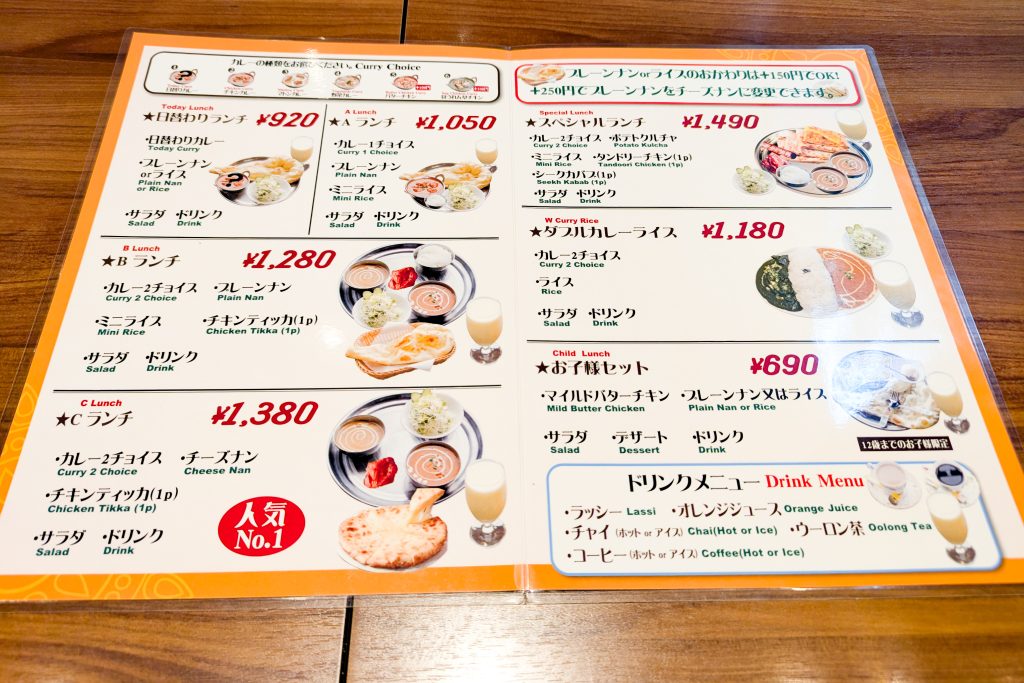 カレーの種類をお選びください。Curry Choice
日替わりカレー
チキンカレー
バターチキン
Today Lunch
★日替わりランチ ¥920
・日替わりカレー
Today Curry
・プレーンナン
orライス
Plain Nan
or Rice
・サラダ ・ドリンク
Salad Drink
A Lunch
★A ランチ ¥1,050
・カレー1チョイス
Curry 1 Choice
・プレーンナン
Plain Nan
・ミニライス
Mini Rice
・サラダ ・ドリンク
Salad Drink
B Lunch
★B ランチ ¥1,280
・カレー2チョイス ・プレーンナン
Curry 2 Choice Plain Nan
・ミニライス ・チキンティッカ(1p)
Mini Rice Chicken Tikka (1p)
・サラダ ・ドリンク
Salad Drink
C Lunch
★C ランチ ¥1,380
・カレー2チョイス ・チーズナン
Curry 2 Choice Cheese Nan
・チキンティッカ(1p)
Chicken Tikka (1p)
・サラダ ・ドリンク
Salad Drink
人気
No.1
プレーンナンorライスのおかわりは+150円でOK!
+250円でプレーンナンをチーズナンに変更できます。
Special Lunch
★スペシャルランチ ¥1,490
・カレー2チョイス ・ポテトクルチャ
Curry 2 Choice Potato Kulcha
・ミニライス ・タンドリーチキン(1p)
Mini Rice Tandoori Chicken (1p)
・シークカバブ(1p)
Seekh Kabab (1p)
・サラダ ・ドリンク
Salad Drink
W Curry Rice
★ダブルカレーライス ¥1,180
・カレー2チョイス
Curry 2 Choice
・ライス
Rice
・サラダ ・ドリンク
Salad Drink
Child Lunch
★お子様セット ¥690
・マイルドバターチキン ・プレーンナン又はライス
Mild Butter Chicken Plain Nan or Rice
・サラダ ・デザート ・ドリンク
Salad Dessert Drink
12歳までのお子様限定
ドリンクメニュー Drink Menu
・ラッシー Lassi ・オレンジジュース Orange Juice
・チャイ (ホット or アイス) Chai(Hot or Ice) ・ウーロン茶 Oolong Tea
・コーヒー (ホット or アイス) Coffee(Hot or Ice)